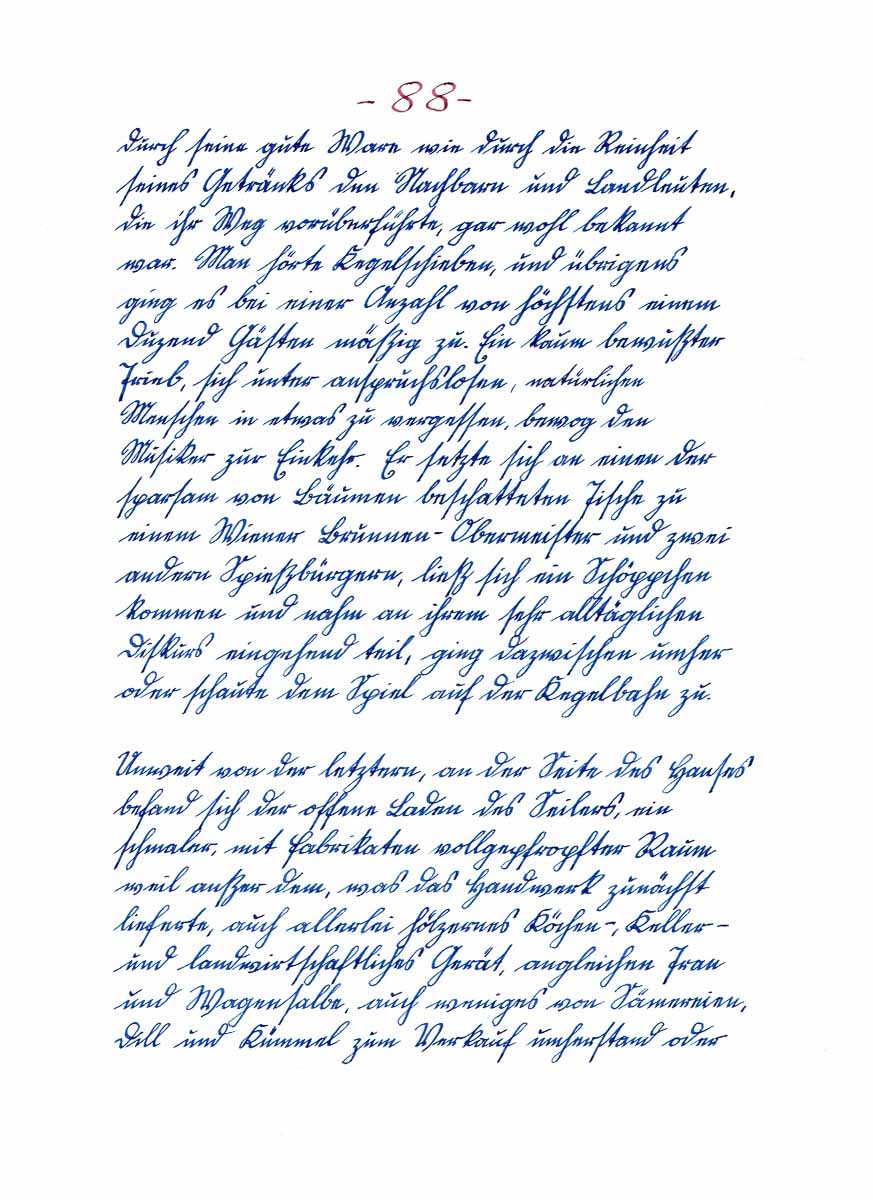 - 88 -
durch seine gute Ware wie durch die Reinheit
seines Getränks den Nachbarn und Landleuten,
die ihr Weg vorüberführte, gar wohl bekannt
war. Man hörte Kegelschieben, und übrigens
ging es bei einer Anzahl von höchstens einem
Duzend Gästen mäßig zu. Ein kaum bewußter
Trieb, sich unter anspruchslosen, natürlichen
Menschen in etwas zu vergessen, bewog den
Musiker zur Einkehr. Er setzte sich an einen der
sparsam von Bäumen beschatteten Tische zu
einem Wiener Brunnen-Obermeister und zwei
andern Spießbürgern, ließ sich ein Schöppchen
kommen und nahm an ihrem sehr alltäglichen
Diskurs eingehend teil, ging dazwischen umher
oder schaute dem Spiel auf der Kegelbahn zu.
Unweit von der letztern, an der Seite des Hauses
befand sich der offene Laden des Seilers, ein
schmaler, mit Fabrikaten vollgepfropfter Raum
weil außer dem, was das Handwerk zunächst
lieferte, auch allerlei hölzernes Köchen-, Keller-
und landwirtschaftliches Gerät, angleichen Tran
und Wagensalbe, auch weniges von Sämereien,
Dill und Kümmel zum Verkauf umherstand oder